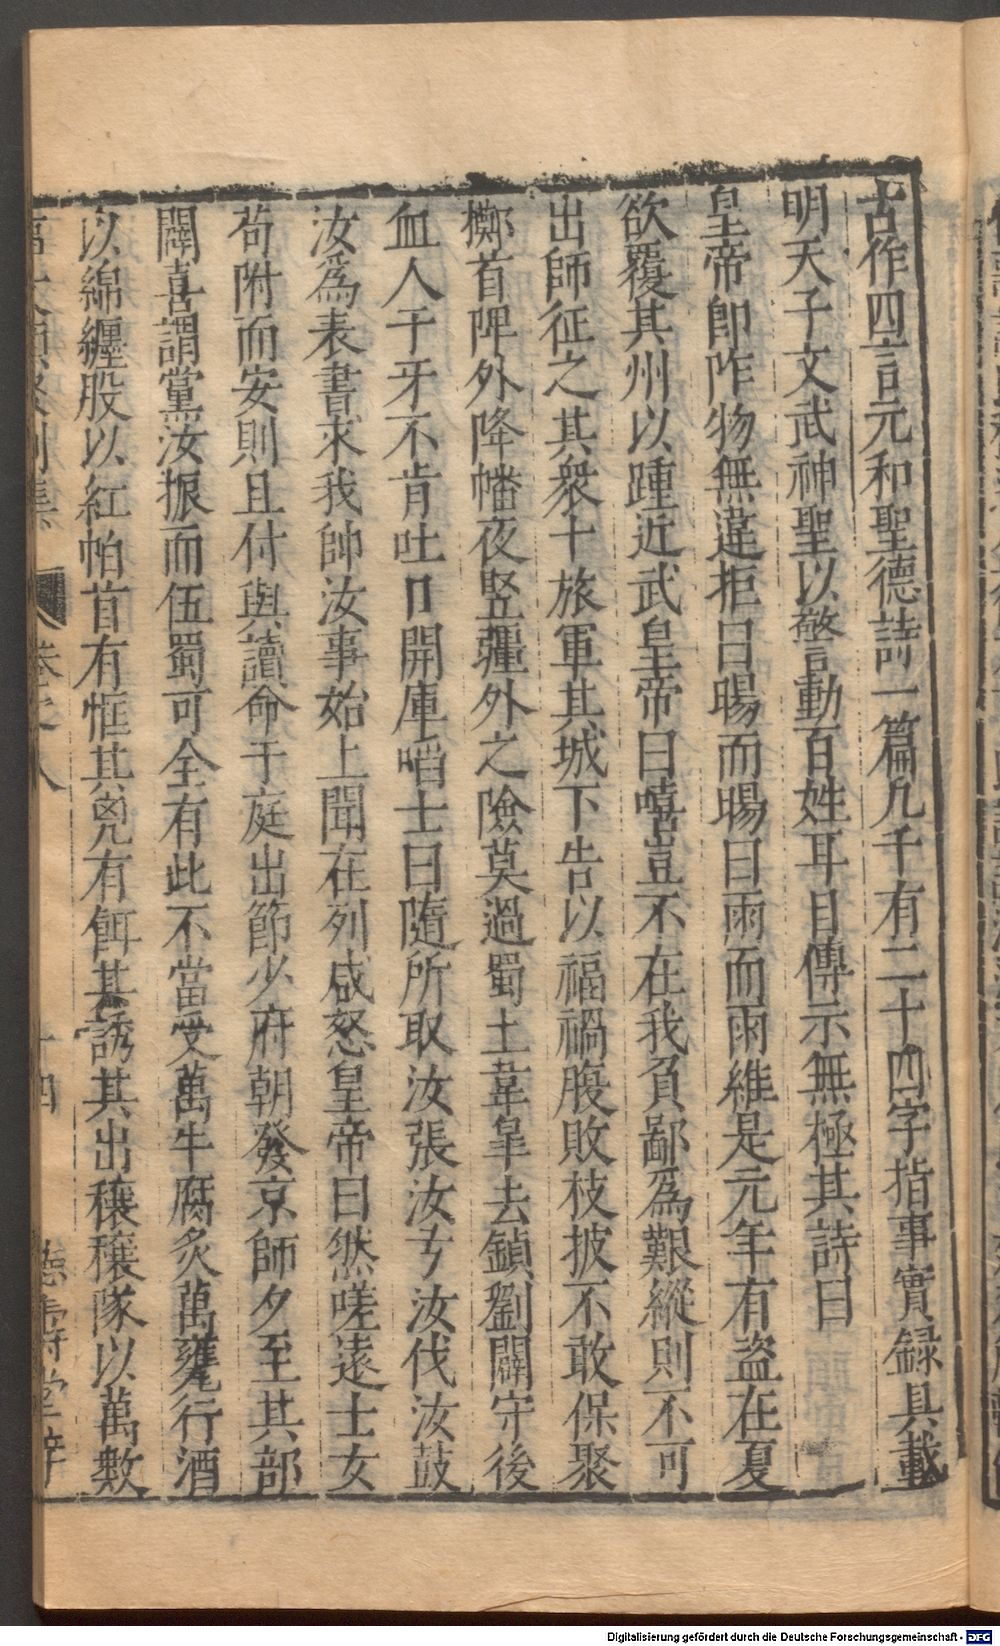 古作四言元和聖德詩一篇凡千有二十四字指事實録具載
明天子文武神聖以警動百姓耳目傳示無極其詩曰
皇帝即阼物無違拒曰暘而暘曰雨而雨維是元年有盗在夏
欲覆其州以踵近武皇帝曰嘻豈不在我負鄙爲艱縱則不可
出師征之其衆十旅軍其城下告以福禍腹敗枝披不敢保聚
擲首陴外降幡夜竪疆外之險莫過蜀土韋皐去鎮劉闢守後
血人于牙不肯吐口開庫啗士曰隨所取汝張汝弓汝伐汝鼓
汝爲表書求我帥汝事始上聞在列咸怒皇帝曰然嗟遠士女
苟附而安則且付與讀命于庭出節少府朝發京師夕至其部
闢喜謂黨汝振而伍蜀可全有此不當受萬牛臠炙萬甕行酒
以綿纏股以紅帕首有恇其兇有餌其誘其出穰穰隊以萬數
卷之八
十四
德壽堂梓
Digitalisierung gefördert durch die Deutsche Forschungsgemeinschaft - DFG